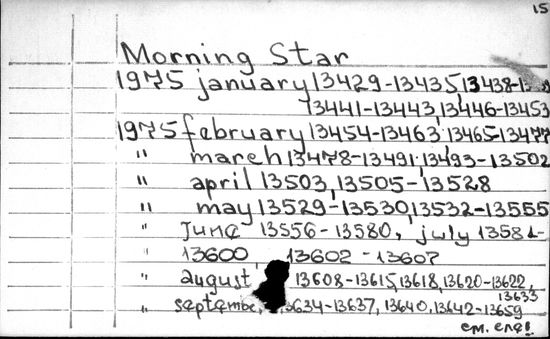 15
Morning Star
1975 january 13429-13435, 13438-
13441-13443, 13446-13453
1975 february 13454-13463, 13465-13477
" march 13478-13491, 13493-13502
" april 13503, 13505-13528
" may 13529-13530, 13532-13555
" June 13556-13580, july 13581-
13600, 13602-13607
" august, 13608-13615, 13618, 13620-13622,
13633
" septembe, 13634-13637, 13640, 13642-13659
см. след.